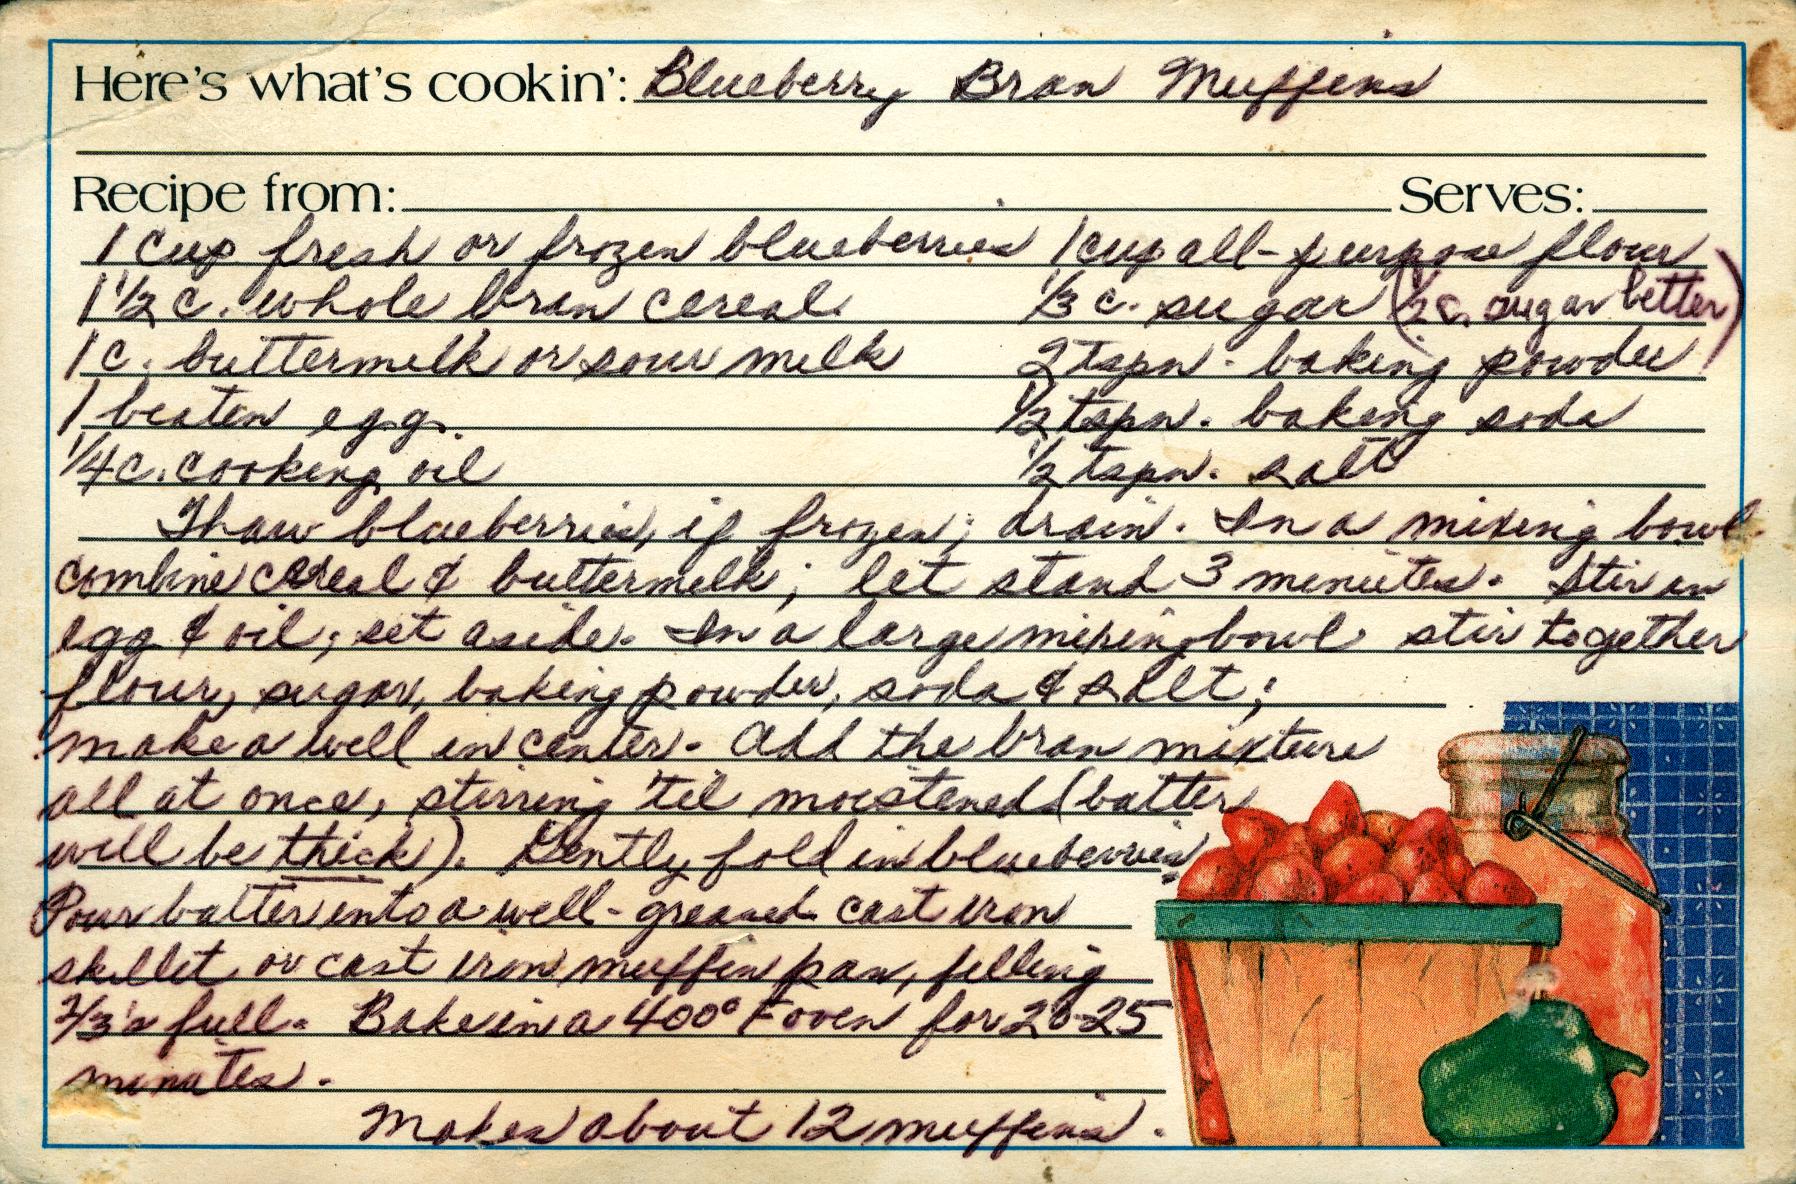 Here's what's cookin': Blueberry Bran Muffins
Recipe from: Serves:
1 cup fresh or frozen blueberries 1 cup all-purpose flour
1 1/2 c. whole bran cereal 1/3 c. sugar (1/2 c. sugar better)
1 c. buttermilk or sour milk 2 tspn. baking powder
1 beaten egg. 1/2 tspn. baking soda
1/4 c. cooking oil 1/2 tspn. salt
Thaw blueberries, if frozen; drain. In a mixing bowl
combine cereal & buttermilk; let stand 3 minutes. Stir in
egg & oil; set aside. In a large mixing bowl stir together
flour, sugar, baking powder, soda & salt;
make a well in center. Add the bran mixture
all at once, stirring 'til moistened (batter
will be thick). Gently fold in blueberries.
Pour batter into a well-greased cast iron
skillet or cast iron muffin pan, filling
2/3's full. Bake in a 400° F oven for 20-25
minutes.
Makes about 12 muffins.